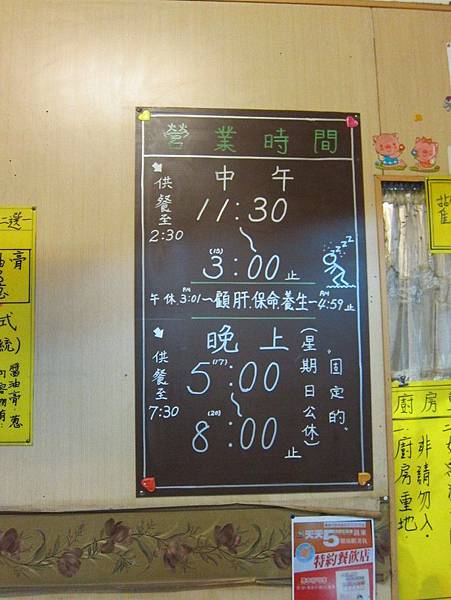 營業時間
中午
供餐至
2:30
11:30
～
(15)
3:00止
zzzz
午休 PM 3:01～顧肝.保命.養生～PM 4:59止
晚上
(星期日公休)
固定的、
供餐至
7:30
(17)
5:00
～
(20)
8:00
止
二選一
膏
式
統)
醬油膏.蔥
廚房重
非請勿入.
廚房重地
天天5
特約餐飲店